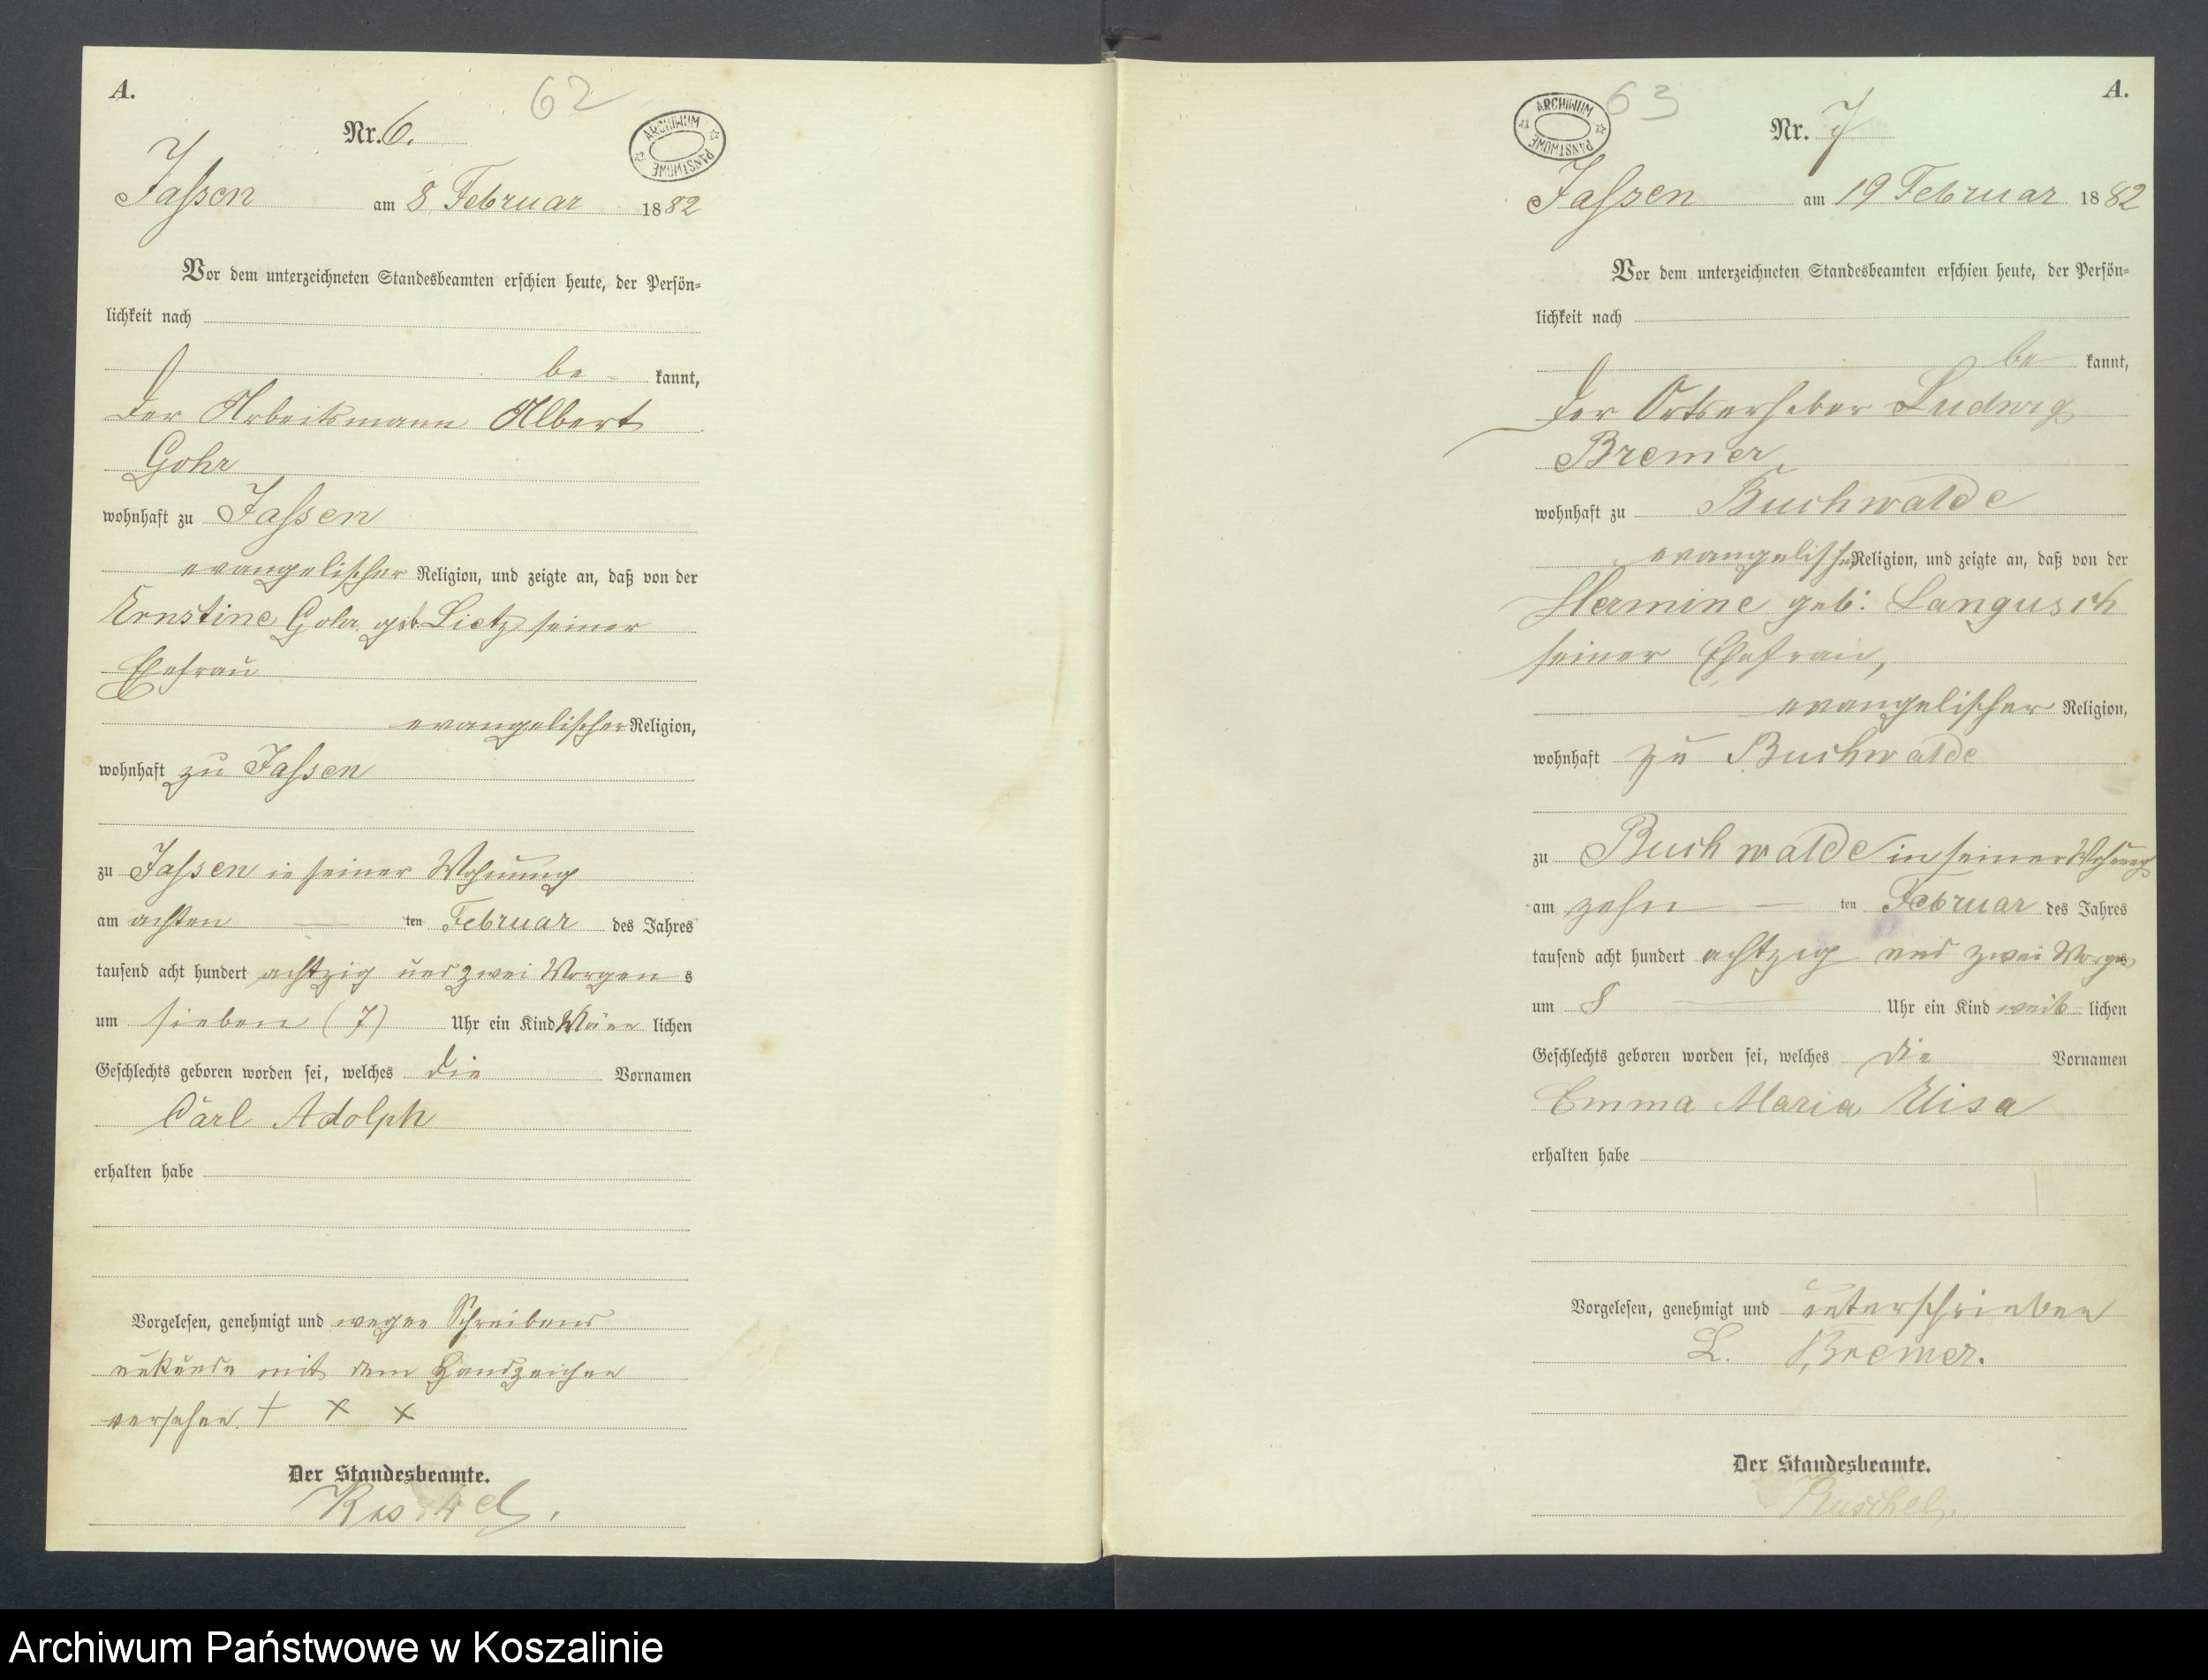 A.
62
Nr. 6.
ARCHIWUM PAŃSTWOWE
Jassen am 8 Februar 1882
Vor dem unterzeichneten Standesbeamten erschien heute, der Persön-
lichkeit nach
be kannt,
der Arbeitsmann Albert
Gohr
wohnhaft zu Jassen
evangelischer Religion, und zeigte an, daß von der
Ernstine Gohr geb. Lietz seiner
Ehefrau
evangelischer Religion,
wohnhaft zu Jassen
zu Jassen in seiner Wohnung
am achten ten Februar des Jahres
tausend acht hundert achtzig und zwei Morgens
um sieben (7) Uhr ein Kind Männ lichen
Geschlechts geboren worden sei, welches die Vornamen
Carl Adolph
erhalten habe
Vorgelesen, genehmigt und wegen Schreibens
unkunde mit dem Handzeichen
versehen. + x x
Der Standesbeamte.
A.
63
Nr. 7
ARCHIWUM PAŃSTWOWE
Jassen am 19 Februar 1882
Vor dem unterzeichneten Standesbeamten erschien heute, der Persön-
lichkeit nach
be kannt,
der Ortserheber Ludwig
Bremer
wohnhaft zu Buchwalde
evangelischer Religion, und zeigte an, daß von der
Hermine geb: Langusch
seiner Ehefrau,
evangelischer Religion,
wohnhaft zu Buchwalde
zu Buchwalde in seiner Wohnung
am zehn ten Februar des Jahres
tausend acht hundert achtzig und zwei Morgens
um 8 Uhr ein Kind weib lichen
Geschlechts geboren worden sei, welches die Vornamen
Emma Maria Elisa
erhalten habe
Vorgelesen, genehmigt und unterschrieben
L. Bremer.
Der Standesbeamte.
Ruschel.
Archiwum Państwowe w Koszalinie